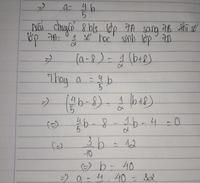 => a = 4/5 b
Nếu chuyển 8 h/s lớp 7A sang 7B thì số
lớp 7A = 1/2 số học sinh lớp 7B
=> (a-8) = 1/2 (b+8)
Thay a = 4/5 b
=> (4/5 b - 8) = 1/2 (b+8)
<=> 4/5 b - 8 - 1/2 b - 4 = 0
<=> 3/10 b = 12
<=> b = 40
=> a = 4/5 . 40 = 32